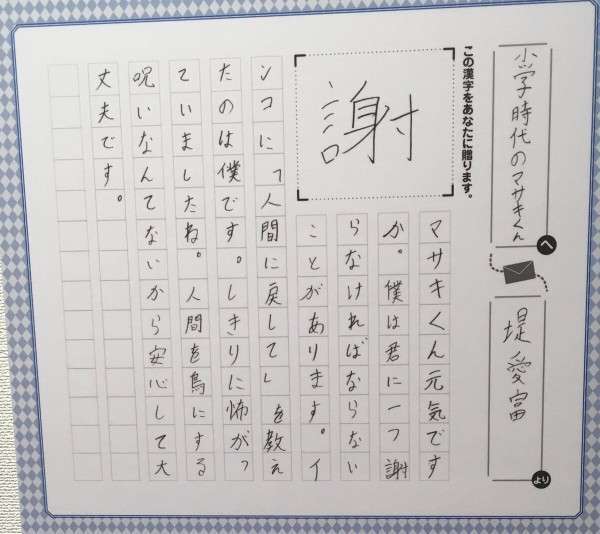 小学時代のマサキくん
へ
堤 愛富
より
この漢字をあなたに贈ります。
謝
マサキくん元気です
か。僕は君に一つ謝
らなければならない
ことがあります。イ
ンコに「人間に戻して」を教え
たのは僕です。しきりに怖がっ
ていましたね。人間を鳥にする
呪いなんてないから安心して大
丈夫です。